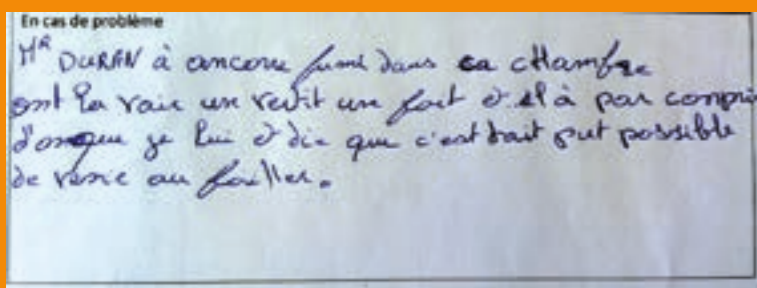 En cas de problème
MR DURAN à encore fumé dans ca chambre
ont la vair une vertit une foit et el à par compri
d'onque je lui et dis que c'est trait put possible
de venir au foiller.